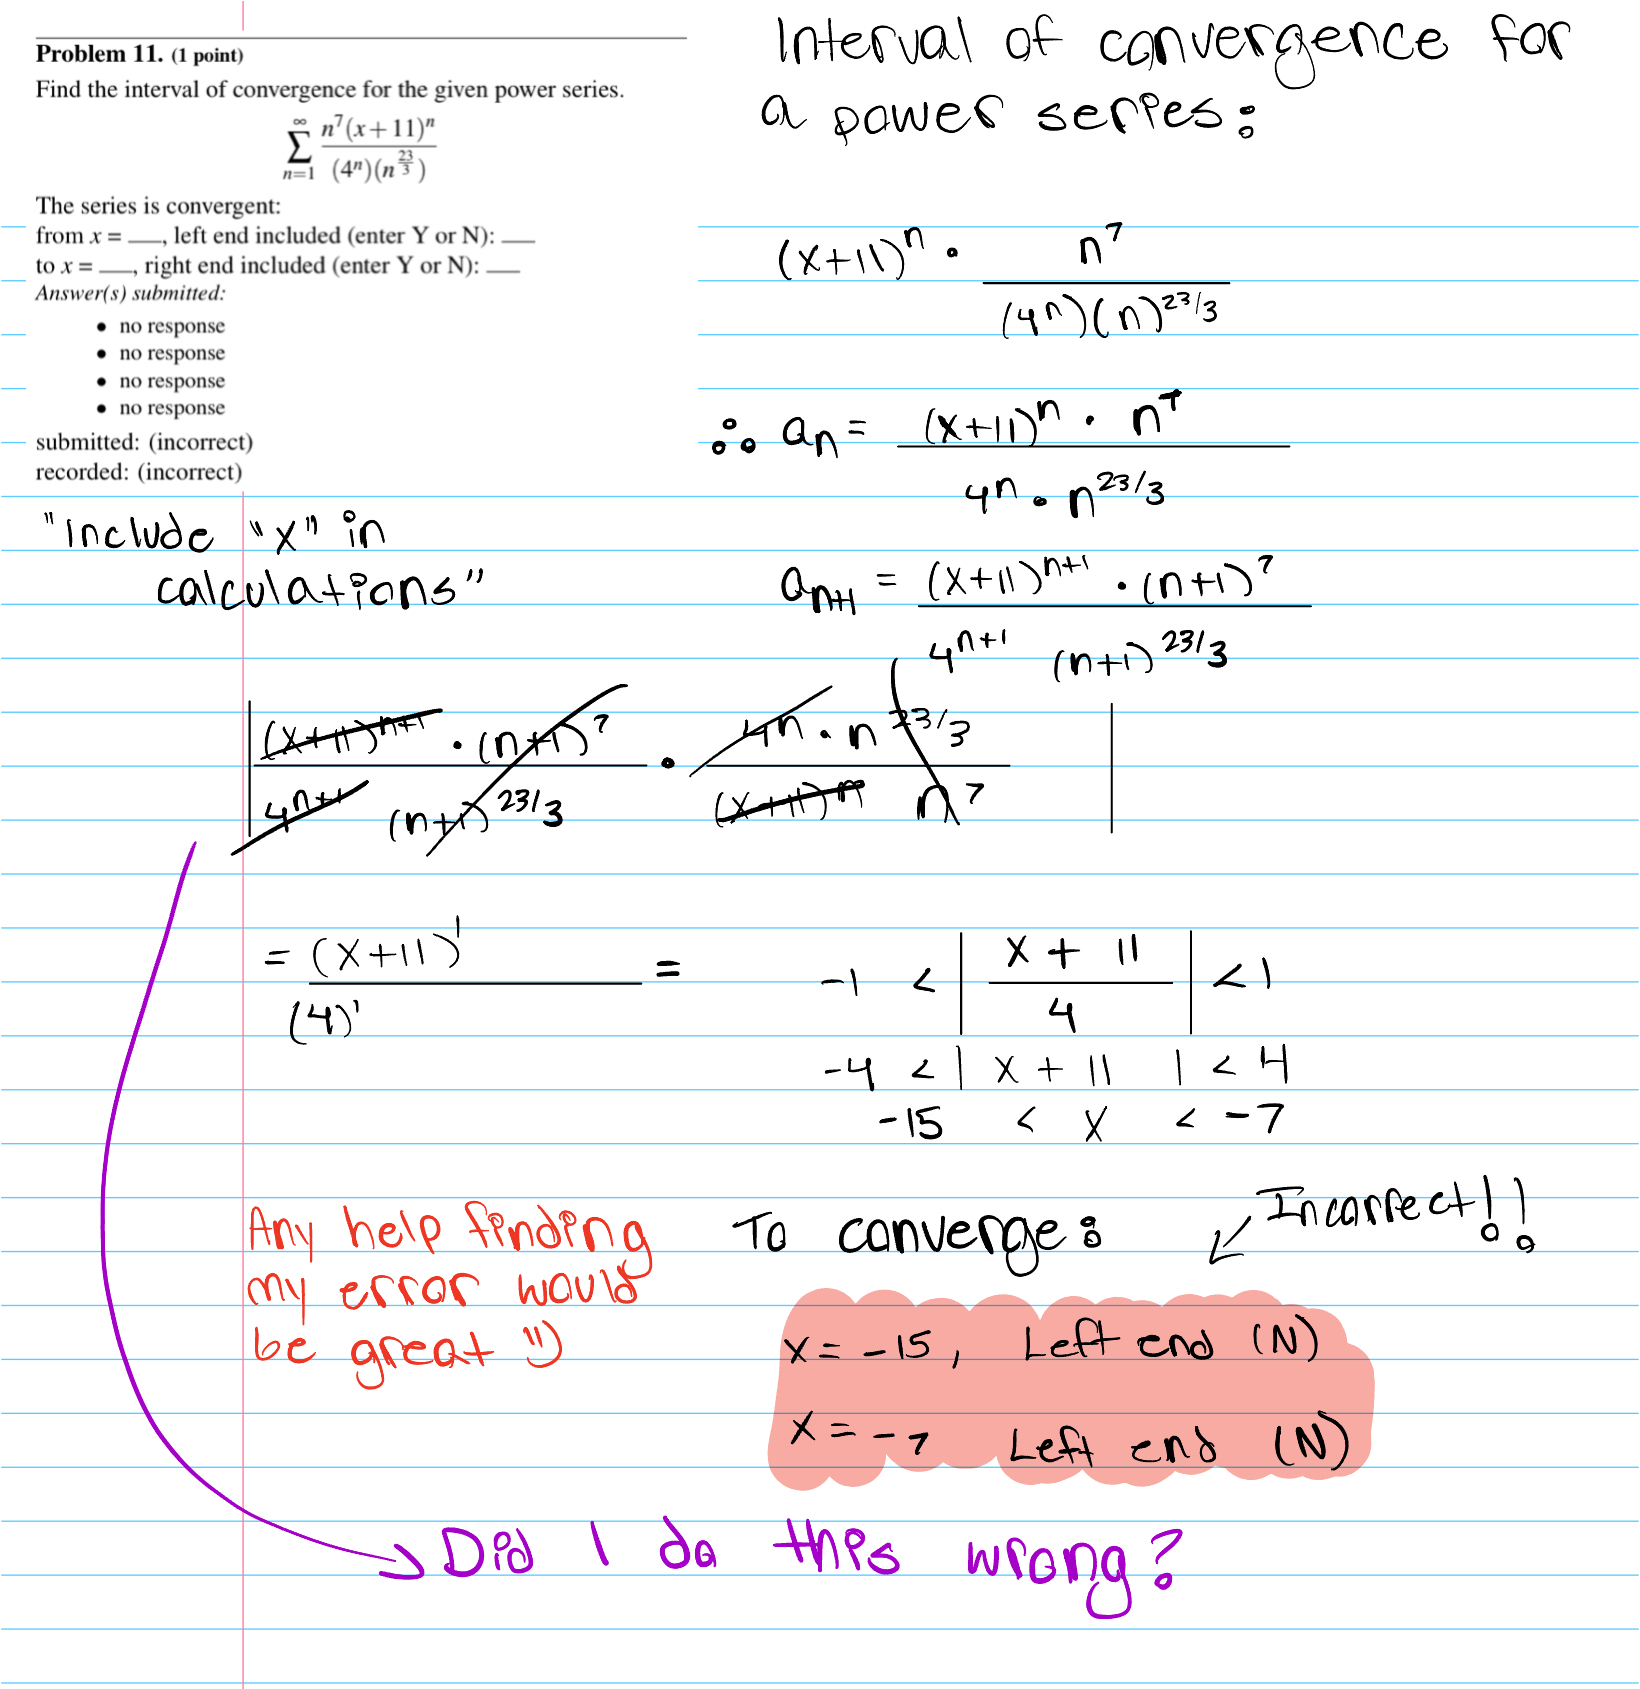 Problem 11. (1 point)
Find the interval of convergence for the given power series.
∞
∑ n⁷(x+11)ⁿ / (4ⁿ)(n^(23/3))
n=1
The series is convergent:
from x = ___, left end included (enter Y or N): ___
to x = ___, right end included (enter Y or N): ___
Answer(s) submitted:
• no response
• no response
• no response
• no response
submitted: (incorrect)
recorded: (incorrect)
Interval of convergence for
a power series:
(x+11)ⁿ • n⁷ / (4ⁿ)(n)^(23/3)
∴ aₙ = (x+11)ⁿ · n⁷ / 4ⁿ • n^(23/3)
"Include "x" in
calculations"
aₙ₊₁ = (x+11)ⁿ⁺¹ · (n+1)⁷ / 4ⁿ⁺¹ (n+1)^(23/3)
| (x+11)ⁿ⁺¹ · (n+1)⁷ / 4ⁿ⁺¹ (n+1)^(23/3) • 4ⁿ · n^(23/3) / (x+11)ⁿ n⁷ |
= (x+11)¹ / (4)¹ = -1 < | x + 11 / 4 | < 1
-4 < | x + 11 | < 4
-15 < x < -7
Any help finding
my error would
be great :)
To converge:
Incorrect!!
x = -15, Left end (N)
x = -7 Left end (N)
Did I do this wrong?